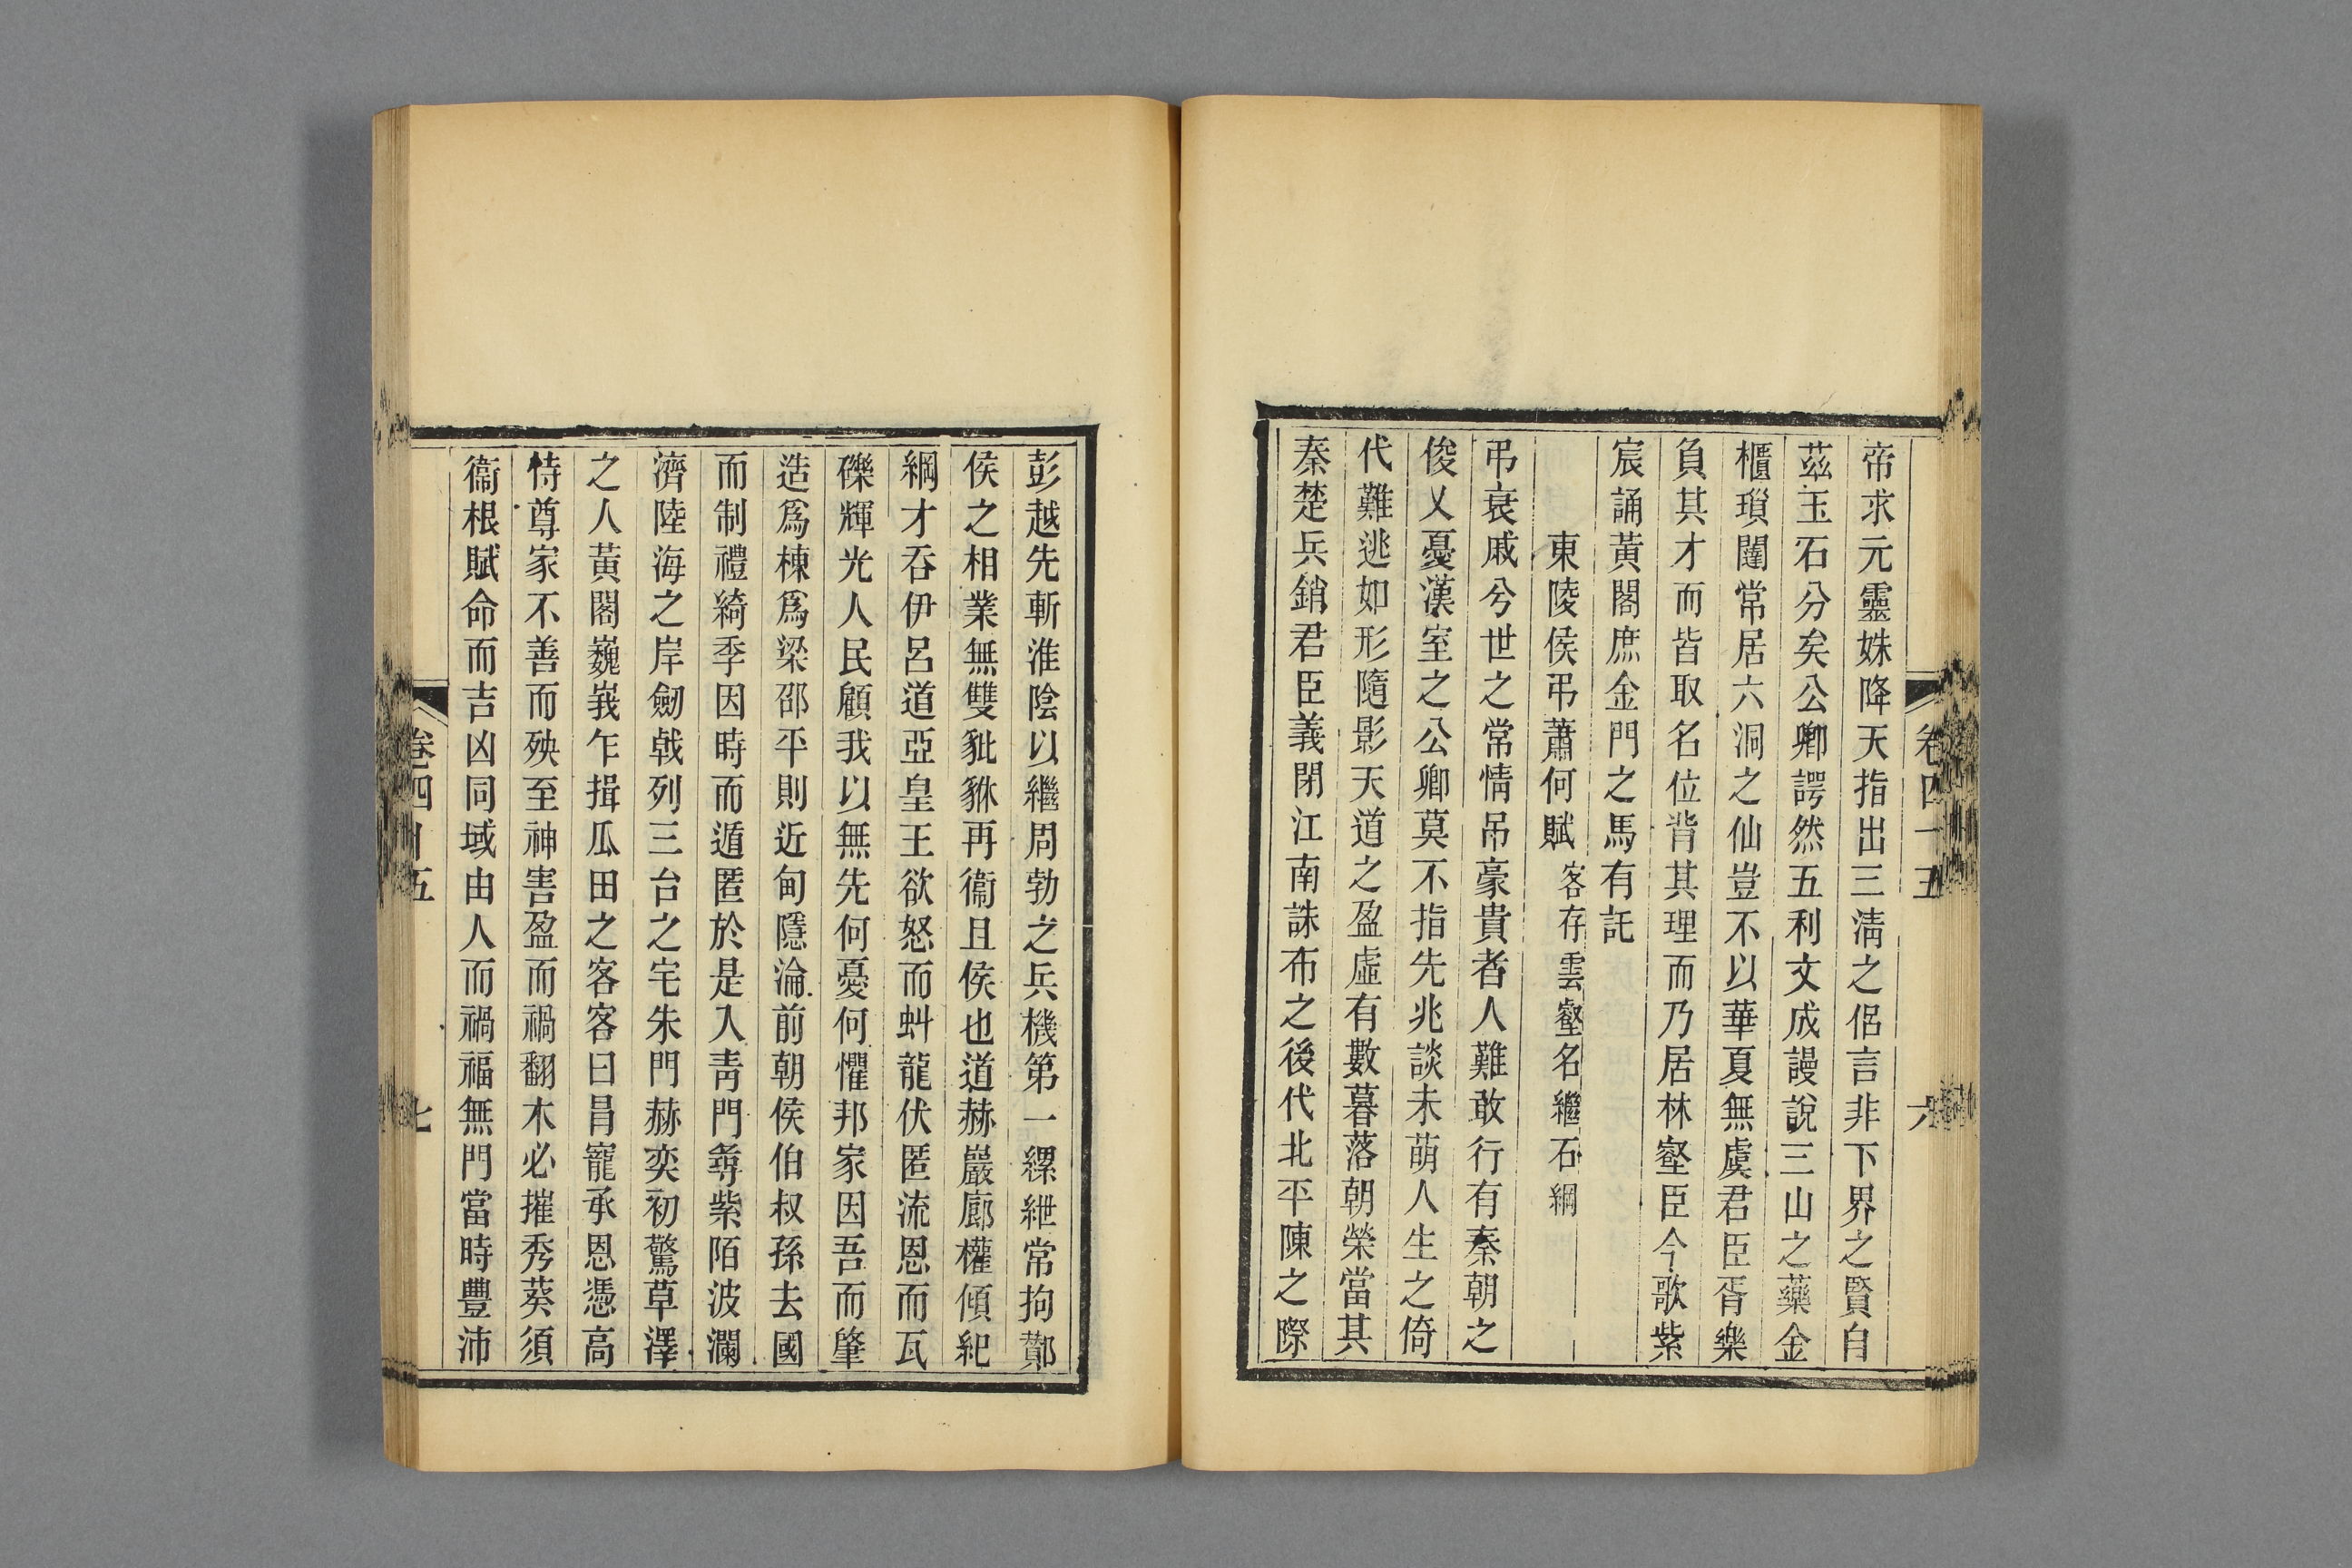 帝求元靈姝降天指出三淸之侶言非下界之賢自
茲玉石分矣公卿諤然五利文成謾說三山之藥金
櫃瑣闈常居六洞之仙豈不以華夏無虞君臣胥樂
負其才而皆取名位背其理而乃居林壑臣今歌紫
宸誦黃閣庶金門之馬有託
東陵侯弔蕭何賦 客存雲壑名繼石綱
弔衰戚兮世之常情吊豪貴者人難敢行有秦朝之
俊乂憂漢室之公卿莫不指先兆談未萌人生之倚
代難逃如形隨影天道之盈虛有數暮落朝榮當其
秦楚兵銷君臣義閉江南誅布之後代北平陳之際
卷四十五
六
彭越先斬淮陰以繼周勃之兵機第一縲紲常拘酇
侯之相業無雙豼貅再衞且侯也道赫巖廊權傾紀
綱才吞伊呂道亞皇王欲怒而虯龍伏匿流恩而瓦
礫輝光人民顧我以無先何憂何懼邦家因吾而肇
造爲棟爲梁邵平則近甸隱淪前朝侯伯叔孫去國
而制禮綺季因時而遁匿於是入靑門尋紫陌波瀾
濟陸海之岸劒戟列三台之宅朱門赫奕初驚草澤
之人黃閣巍峩乍揖瓜田之客客曰昌寵承恩憑高
恃尊家不善而殃至神害盈而禍翻木必摧秀葵須
衞根賦命而吉凶同域由人而禍福無門當時豐沛
卷四十五
七